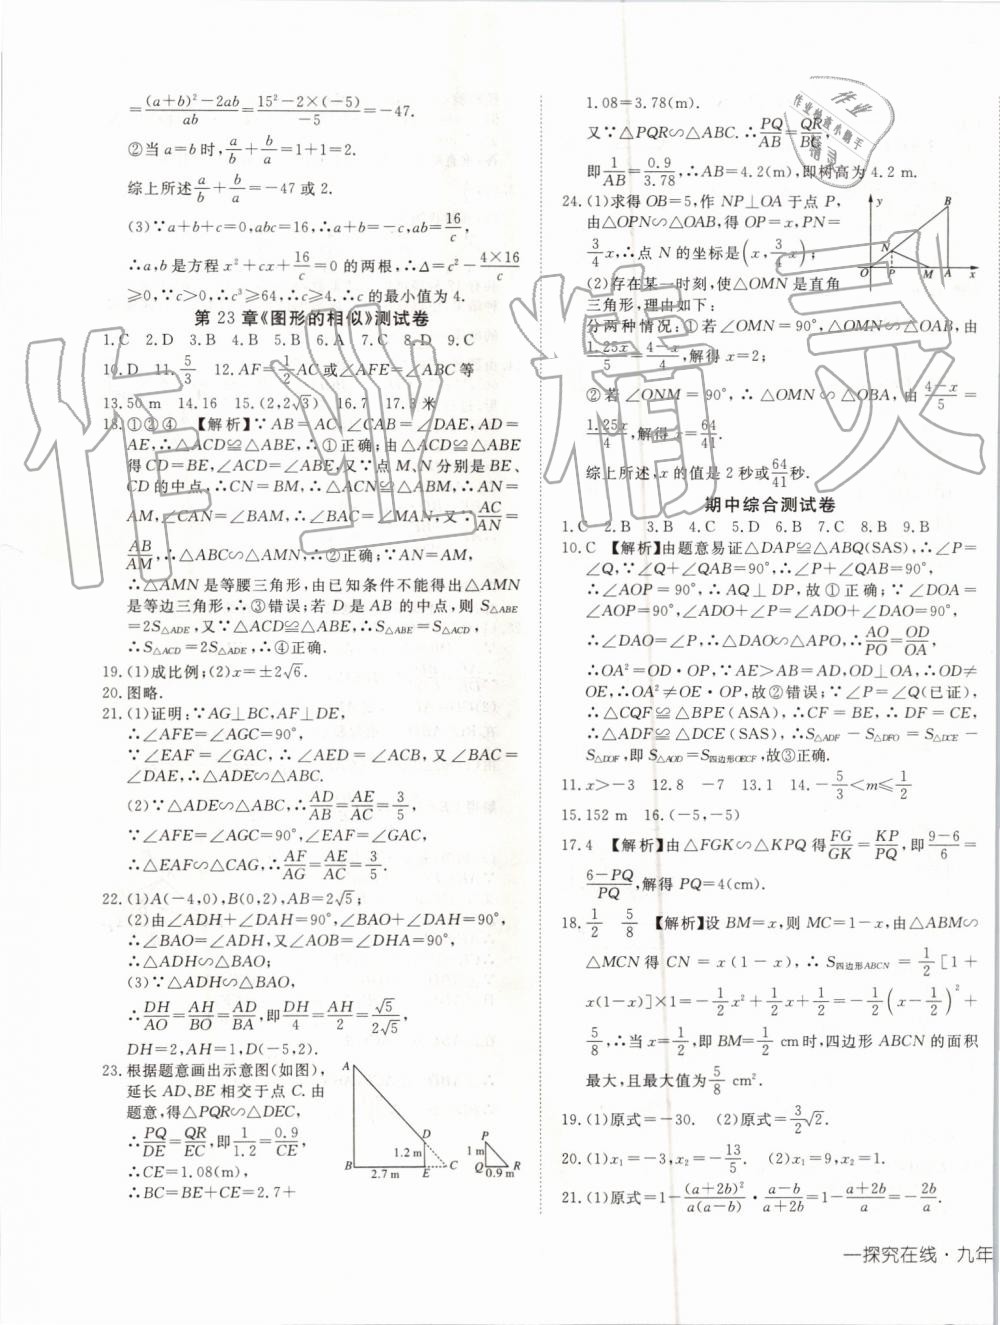 =\frac{(a+b)²-2ab}{ab}=\frac{15²-2×(-5)}{-5}=-47.
②当 a=b 时,\frac{a}{b}+\frac{b}{a}=1+1=2.
综上所述\frac{a}{b}+\frac{b}{a}=-47 或2.
(3)∵a+b+c=0,abc=16,∴a+b=-c,ab=\frac{16}{c}
∴a,b 是方程 x²+cx+\frac{16}{c}=0 的两根,∴Δ=c²-\frac{4×16}{c}
≥0,∵c>0,∴c³≥64,∴c≥4.∴c 的最小值为 4.
第 23 章《图形的相似》测试卷
1.C 2.D 3.B 4.B 5.B 6.A 7.C 8.D 9.C
10.D 11.\frac{5}{3} 12.AF=\frac{1}{2}AC或∠AFE=∠ABC等
13.50 m 14.16 15.(2,2√3) 16.7 17.8米
18.①②④ 【解析】∵AB=AC,∠CAB=∠DAE,AD=
AE,∴△ACD≌△ABE,∴①正确;由△ACD≌△ABE
得CD=BE,∠ACD=∠ABE,又∵点 M、N 分别是 BE、
CD 的中点,∴CN=BM,∴△ACN≌△ABM,∴AN=
AM,∠CAN=∠BAM,∴∠BAC=∠MAN,又∵\frac{AC}{AN}=
\frac{AB}{AM},∴△ABC∽△AMN,∴②正确;∵AN=AM,
∴△AMN 是等腰三角形,由已知条件不能得出△AMN
是等边三角形,∴③错误;若 D 是 AB 的中点,则 S△ABE
=2S△ADE,又∵△ACD≌△ABE,∴S△ABE=S△ACD,
∴S△ACD=2S△ADE,∴④正确.
19.(1)成比例;(2)x=±2√6.
20.图略.
21.(1)证明:∵AG⊥BC,AF⊥DE,
∴∠AFE=∠AGC=90°,
∵∠EAF=∠GAC,∴∠AED=∠ACB,又∠BAC=
∠DAE,∴△ADE∽△ABC.
(2)∵△ADE∽△ABC,∴\frac{AD}{AB}=\frac{AE}{AC}=\frac{3}{5},
∵∠AFE=∠AGC=90°,∠EAF=∠GAC,
∴△EAF∽△CAG,∴\frac{AF}{AG}=\frac{AE}{AC}=\frac{3}{5}.
22.(1)A(-4,0),B(0,2),AB=2√5;
(2)由∠ADH+∠DAH=90°,∠BAO+∠DAH=90°,
∴∠BAO=∠ADH,又∠AOB=∠DHA=90°,
∴△ADH∽△BAO;
(3)∵△ADH∽△BAO,
∴\frac{DH}{AO}=\frac{AH}{BO}=\frac{AD}{BA},即\frac{DH}{4}=\frac{AH}{2}=\frac{√5}{2√5},
DH=2,AH=1,D(-5,2).
23.根据题意画出示意图(如图),
延长 AD、BE 相交于点 C.由
题意,得△PQR∽△DEC,
∴\frac{PQ}{DE}=\frac{QR}{EC},即\frac{1}{1.2}=\frac{0.9}{CE},
∴CE=1.08(m),
∴BC=BE+CE=2.7+
A
D
1.2 m
B
2.7 m
E
C
P
1 m
Q
0.9 m
R
1.08=3.78(m).
又∵△PQR∽△ABC.∴\frac{PQ}{AB}=\frac{QR}{BC},
即\frac{1}{AB}=\frac{0.9}{3.78},∴AB=4.2(m),即树高为 4.2 m.
24.(1)求得 OB=5,作 NP⊥OA 于点 P,
由△OPN∽△OAB,得 OP=x,PN=
\frac{3}{4}x,∴点 N 的坐标是(x,\frac{3}{4}x);
(2)存在某一时刻,使△OMN 是直角
三角形,理由如下:
分两种情况:①若∠OMN=90°,△OMN∽△OAB,由
\frac{1.25x}{5}=\frac{4-x}{4},解得 x=2;
②若∠ONM=90°,∴△OMN∽△OBA,由\frac{4-x}{5}=
\frac{1.25x}{4},解得 x=\frac{64}{41}.
综上所述,x 的值是 2 秒或\frac{64}{41}秒.
y
B
N
O
P
M
A
x
期中综合测试卷
1.C 2.B 3.B 4.C 5.D 6.B 7.B 8.B 9.B
10.C 【解析】由题意易证△DAP≌△ABQ(SAS),∴∠P=
∠Q,∵∠Q+∠QAB=90°,∴∠P+∠QAB=90°,
∴∠AOP=90°,∴AQ⊥DP,故①正确;∵∠DOA=
∠AOP=90°,∠ADO+∠P=∠ADO+∠DAO=90°,
∴∠DAO=∠P,∴△DAO∽△APO,∴\frac{AO}{PO}=\frac{OD}{OA},
∴OA²=OD·OP,∵AE>AB=AD,OD⊥OA,∴OD≠
OE,∴OA²≠OE·OP,故②错误;∵∠P=∠Q(已证),
∴△CQF≌△BPE(ASA),∴CF=BE,∴DF=CE,
∴△ADF≌△DCE(SAS),∴S△ADF-S△DFO=S△DCE-
S△DOF,即 S△AOD=S四边形OECF,故③正确.
11.x>-3 12.8 -7 13.1 14.-\frac{5}{3}<m≤\frac{1}{2}
15.152 m 16.(-5,-5)
17.4 【解析】由△FGK∽△KPQ 得\frac{FG}{GK}=\frac{KP}{PQ},即\frac{9-6}{6}=
\frac{6-PQ}{PQ},解得 PQ=4(cm).
18.\frac{1}{2} \frac{5}{8} 【解析】设 BM=x,则 MC=1-x,由△ABM∽
△MCN 得 CN=x(1-x),∴S四边形ABCN=\frac{1}{2}[1+
x(1-x)]×1=-\frac{1}{2}x²+\frac{1}{2}x+\frac{1}{2}=-\frac{1}{2}(x-\frac{1}{2})²+
\frac{5}{8},∴当 x=\frac{1}{2},即 BM=\frac{1}{2} cm时,四边形 ABCN 的面积
最大,且最大值为\frac{5}{8} cm².
19.(1)原式=-30. (2)原式=\frac{3}{2}√2.
20.(1)x₁=-3,x₂=-\frac{13}{5}. (2)x₁=9,x₂=1.
21.(1)原式=1-\frac{(a+2b)²}{a(a-b)}·\frac{a-b}{a+2b}=1-\frac{a+2b}{a}=-\frac{2b}{a}.
一探究在线·九年
作业精灵
作业
作业检查小助手
精灵